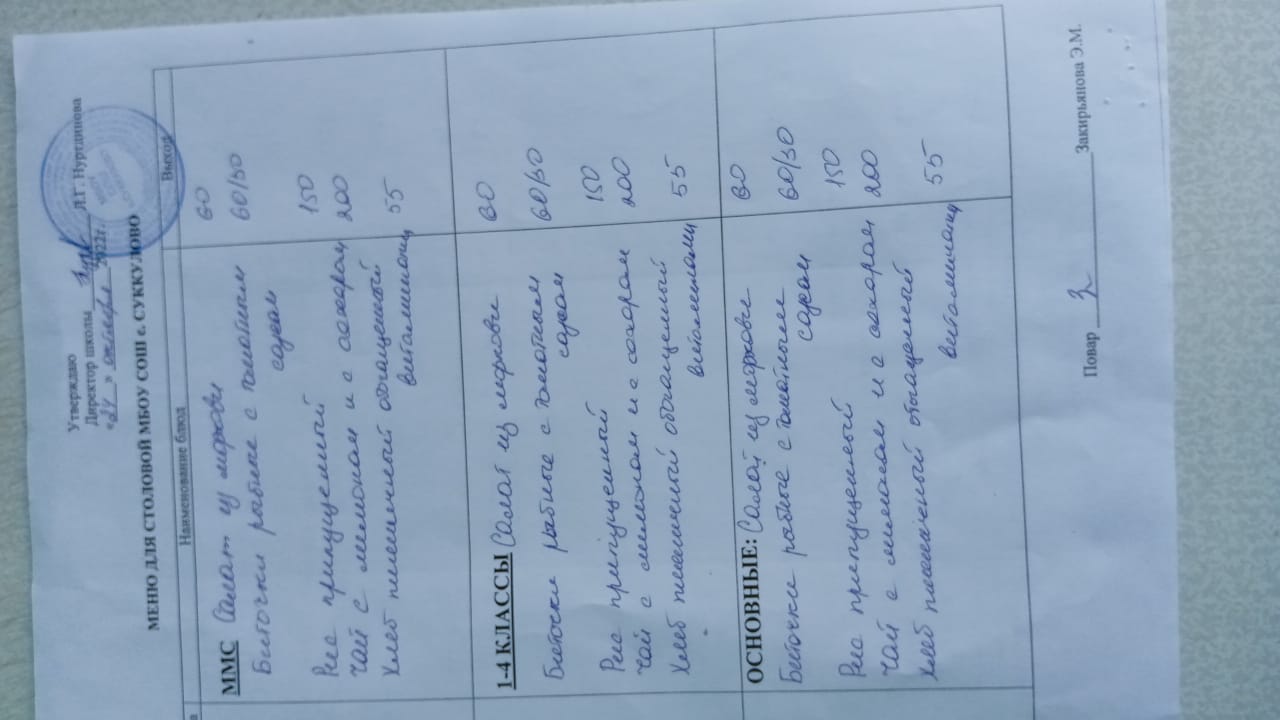 Утверждаю
Директор школы Л.Г. Нуртдинова
«24» октября 2022г.
МЕНЮ ДЛЯ СТОЛОВОЙ МБОУ СОШ с. СУККУЛОВО
Наименование блюд Выход
ММС Салат из моркови 60
Биточки рыбные с томатным 60/30
соусом
Рис припущенный 150
Чай с лимоном и с сахаром 200
Хлеб пшеничный обогащенный 55
витаминами
1-4 КЛАССЫ Салат из моркови 60
Биточки рыбные с томатным 60/30
соусом
Рис припущенный 150
Чай с лимоном и с сахаром 200
Хлеб пшеничный обогащенный 55
витаминами
ОСНОВНЫЕ: Салат из моркови 60
Биточки рыбные с томатным 60/30
соусом
Рис припущенный 150
Чай с лимоном и с сахаром 200
Хлеб пшеничный обогащенный 55
витаминами
Повар Закирьянова Э.М.